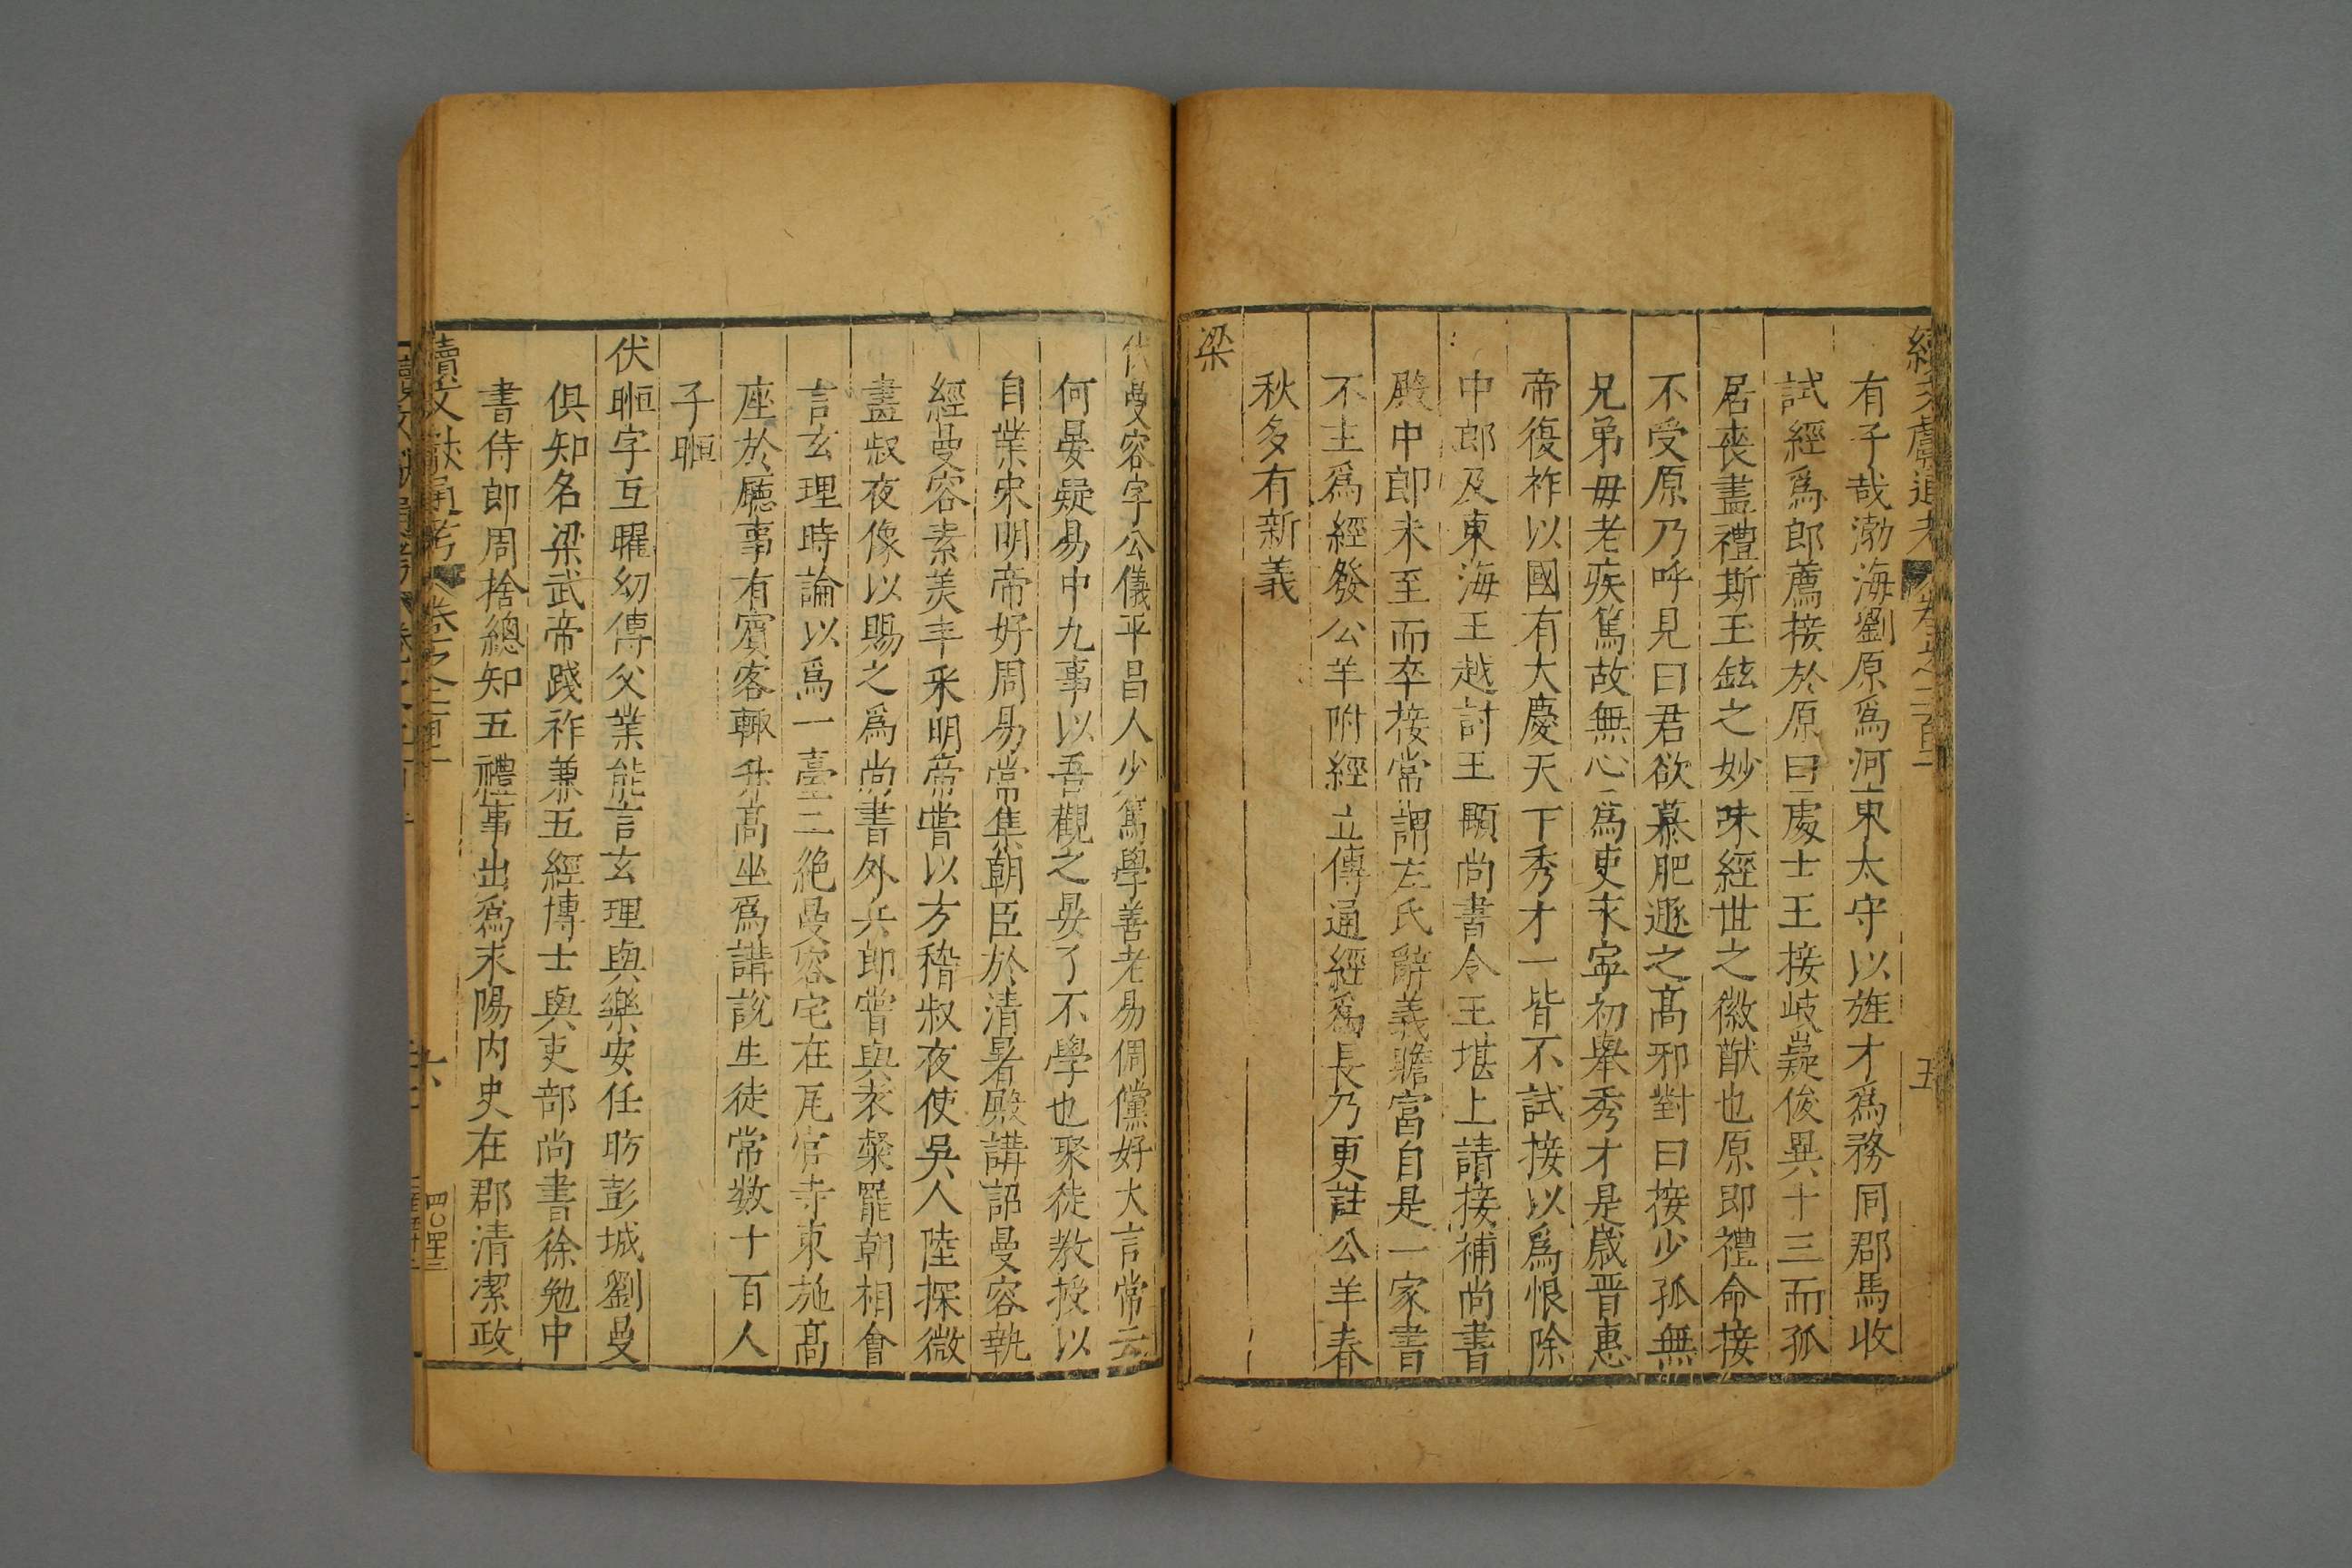 有子哉渤海劉原爲河東太守以旌才爲務同郡馬收
試經爲郎薦接於原曰處士王接岐嶷俊異十三而孤
居喪盡禮斯玉鉉之妙味經世之徽猷也原即禮命接
不受原乃呼見曰君欲慕肥遯之高邪對曰接少孤無
兄弟母老疾篤故無心爲吏末寧初舉秀才是歲晉惠
帝復祚以國有大慶天下秀才一皆不試接以爲恨除
中郎及東海王越討王顒尚書令王堪上請接補尚書
殿中郎未至而卒接常謂左氏辭義贍富自是一家書
不主爲經發公羊附經立傳通經爲長乃更註公羊春
秋多有新義
梁
伏曼容字公儀平昌人少篤學善老易倜儻好大言常云
何晏疑易中九事以吾觀之晏了不學也聚徒教授以
自業宋明帝好周易常集朝臣於清暑殿講詔曼容執
經曼容素美丰采明帝嘗以方稽叔夜使吳人陸探微
畫叔夜像以賜之爲尚書外兵郎嘗與袁粲罷朝相會
言玄理時論以爲一臺二絕曼容宅在瓦官寺東施高
座於廳事有賓客輙升高坐爲講說生徒常数十百人
子暅
伏暅字玄曜幼傳父業能言玄理與樂安任昉彭城劉曼
俱知名梁武帝踐祚兼五經博士與吏部尚書徐勉中
書侍郎周捨總知五禮事出爲永陽内史在郡清潔政
續文獻通考 卷之二百一 六